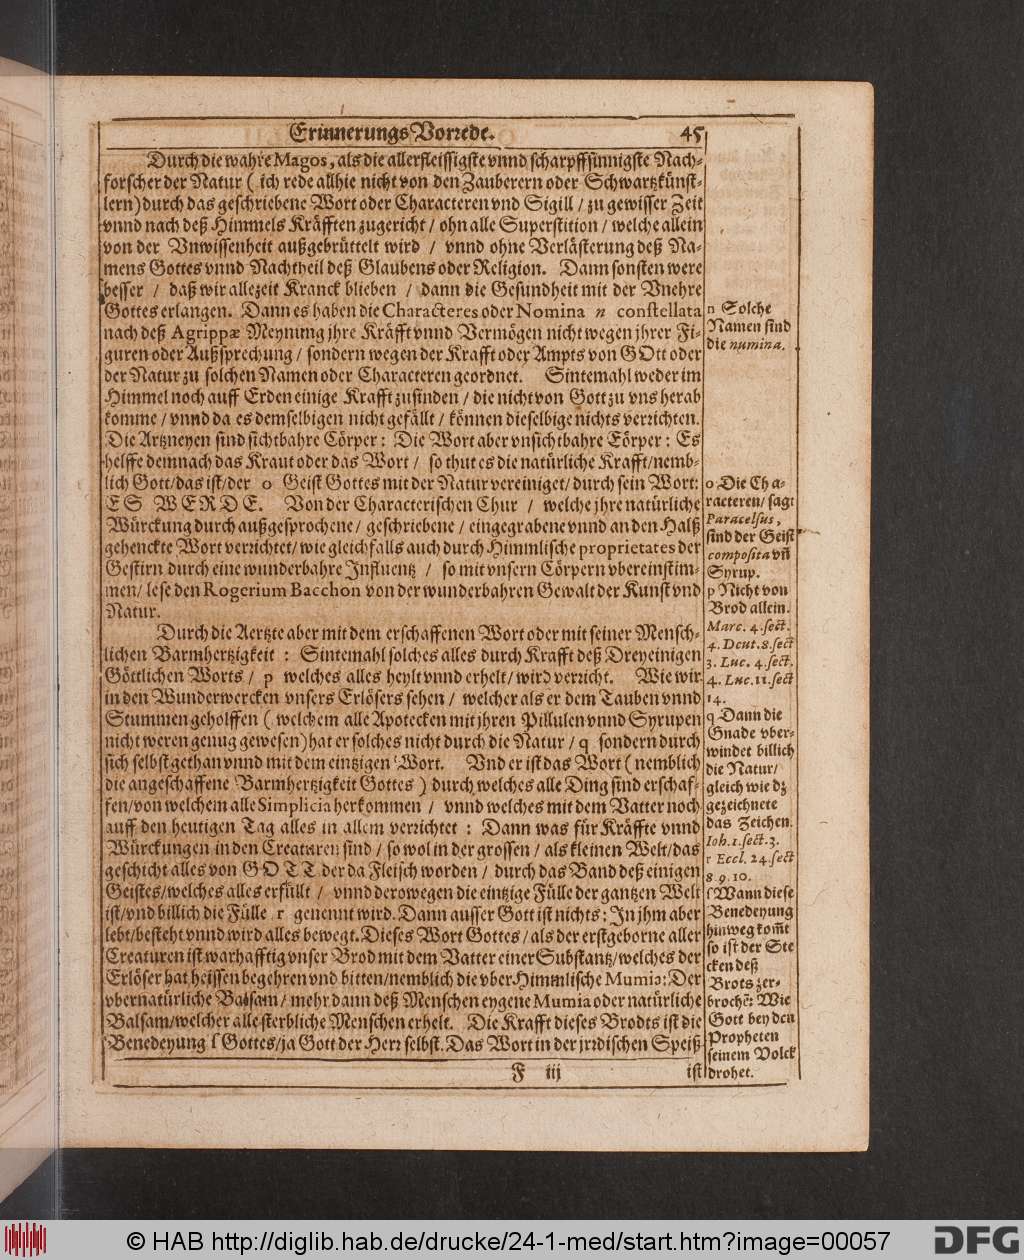 Erinnerungs Vorrede. 45
Durch die wahre Magos, als die allerfleissigste vnnd scharpffsinnigste Nach-
forscher der Natur ( ich rede allhie nicht von den Zauberern oder Schwartzkünst-
lern) durch das geschriebene Wort oder Characteren vnd Sigill / zu gewisser Zeit
vnnd nach deß Himmels Kräfften zugericht / ohn alle Superstition / welche allein
von der Vnwissenheit außgebrüttelt wird / vnnd ohne Verlästerung deß Na-
mens Gottes vnnd Nachtheil deß Glaubens oder Religion. Dann sonsten were
besser / daß wir allezeit Kranck blieben / dann die Gesundheit mit der Vnehre
Gottes erlangen. Dann es haben die Characteres oder Nomina n constellata
nach deß Agrippæ Meynung jhre Kräfft vnnd Vermögen nicht wegen jhrer Fi-
guren oder Außsprechung / sondern wegen der Krafft oder Ampts von GOtt oder
der Natur zu solchen Namen oder Characteren geordnet. Sintemahl weder im
Himmel noch auff Erden einige Krafft zufinden / die nicht von Gott zu vns herab
komme / vnnd da es demselbigen nicht gefällt / können dieselbige nichts verrichten.
Die Artzneyen sind sichtbahre Cörper: Die Wort aber vnsichtbahre Cörper: Es
helffe demnach das Kraut oder das Wort / so thut es die natürliche Krafft/nemb-
lich Gott/das ist/der o Geist Gottes mit der Natur vereiniget/durch sein Wort:
ES WERDE. Von der Characterischen Chur / welche jhre natürliche
Würckung durch außgesprochene / geschriebene / eingegrabene vnnd an den Halß
gehenckte Wort verrichtet/wie gleichfalls auch durch Himmlische proprietates der
Gestirn durch eine wunderbahre Influentz / so mit vnsern Cörpern vbereinstim-
men/ lese den Rogerium Bacchon von der wunderbahren Gewalt der Kunst vnd
Natur.
Durch die Aertzte aber mit dem erschaffenen Wort oder mit seiner Mensch-
lichen Barmhertzigkeit : Sintemahl solches alles durch Krafft deß Dreyeinigen
Göttlichen Worts / p welches alles heylt vnnd erhelt/ wird verricht. Wie wir
in den Wunderwercken vnsers Erlösers sehen / welcher als er dem Tauben vnnd
Stummen geholffen ( welchem alle Apotecken mit jhren Pillulen vnnd Syrupen
nicht weren genug gewesen) hat er solches nicht durch die Natur / q sondern durch
sich selbst gethan vnnd mit dem eintzigen Wort. Vnd er ist das Wort ( nemblich
die angeschaffene Barmhertzigkeit Gottes ) durch welches alle Ding sind erschaf-
fen/von welchem alle Simplicia herkommen / vnnd welches mit dem Vatter noch
auff den heutigen Tag alles in allem verrichtet : Dann was für Kräffte vnnd
Würckungen in den Creaturen sind / so wol in der grossen / als kleinen Welt/das
geschicht alles von GOTT der da Fleisch worden / durch das Band deß einigen
Geistes/welches alles erfüllt / vnnd derowegen die eintzige Fülle der gantzen Welt
ist/vnd billich die Fülle r genennt wird. Dann ausser Gott ist nichts: In jhm aber
lebt/besteht vnnd wird alles bewegt. Dieses Wort Gottes / als der erstgeborne aller
Creaturen ist warhafftig vnser Brod mit dem Vatter einer Substantz/welches der
Erlöser hat heissen begehren vnd bitten/nemblich die vber Himmlische Mumia: Der
vbernatürliche Balsam / mehr dann deß Menschen eygene Mumia oder natürliche
Balsam/welcher alle sterbliche Menschen erhelt. Die Krafft dieses Brodts ist die
Benedeyung ſ Gottes/ja Gott der Herr selbst. Das Wort in der jrrdischen Speiß
F iij ist
n Solche
Namen sind
die numina.
o Die Cha-
racteren/ sagt
Paracelsus,
sind der Geist
composita vñ
Syrup.
p Nicht von
Brod allein.
Marc. 4. sect.
4. Deut. 8. sect
3. Luc. 4. sect.
4. Luc. 11. sect
14.
q Dann die
Gnade vber-
windet billich
die Natur/
gleich wie dz
gezeichnete
das Zeichen.
Ioh. 1. sect. 3.
r Eccl. 24. sect
8. 9. 10.
ſ Wann diese
Benedeyung
hinweg komt̃
so ist der Ste
cken deß
Brots zer-
broche: Wie
Gott bey den
Propheten
seinem Volck
drohet.
© HAB http://diglib.hab.de/drucke/24-1-med/start.htm?image=00057
DFG